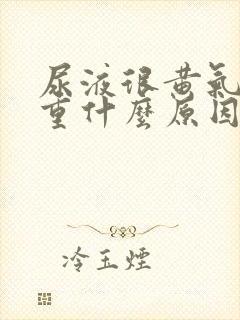 尿液很黄氣
重什麼原因
冷玉煙